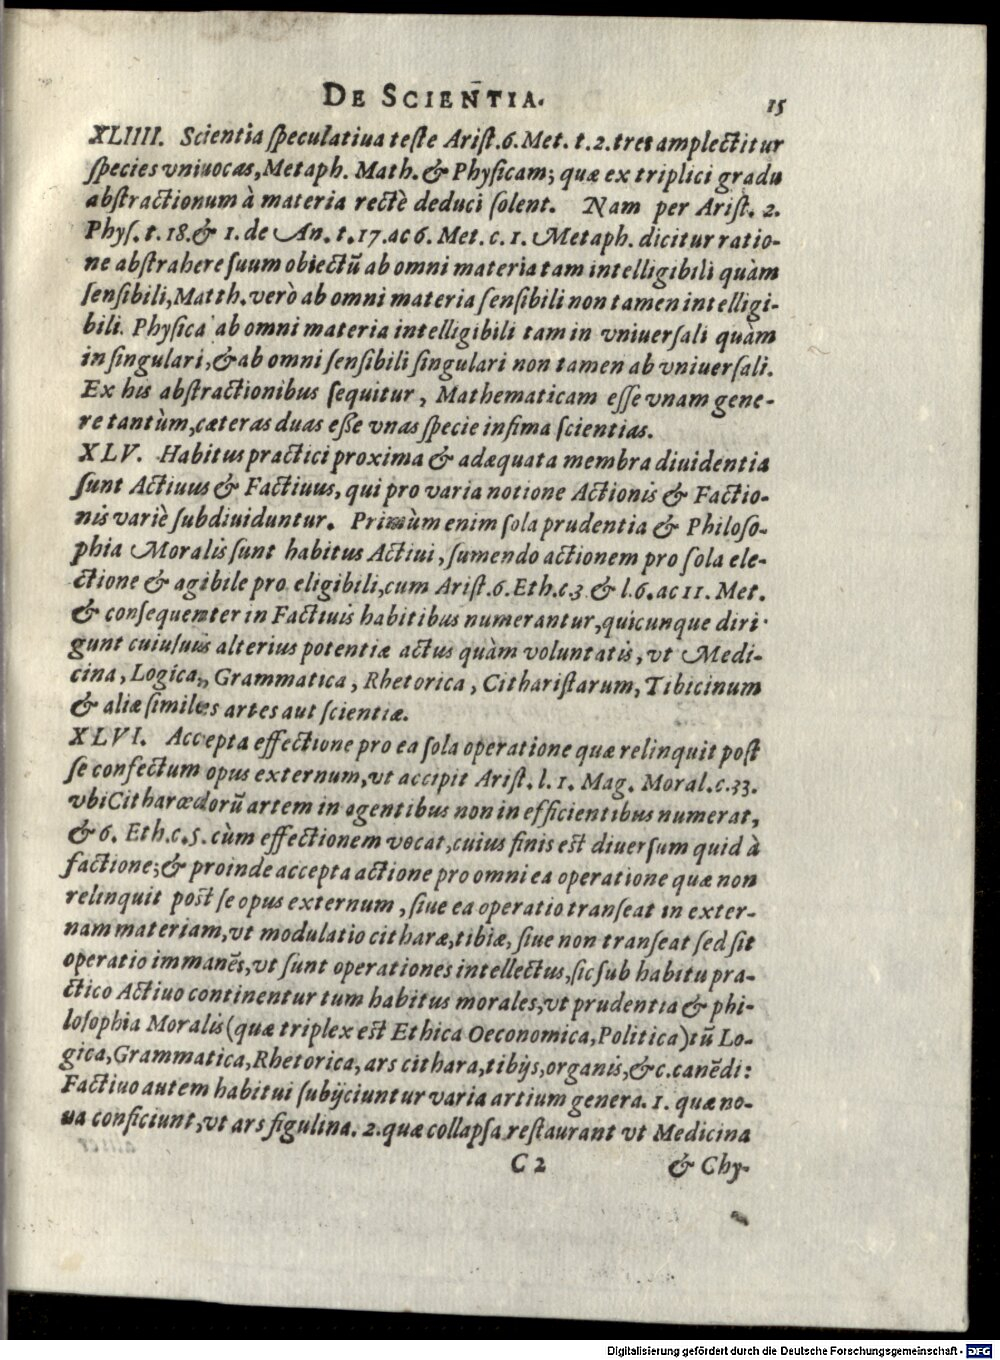 DE SCIEÑTIA.
15
XLIIII. Scientia speculatiua teste Arist. 6. Met. t. 2. tres amplectitur
species vniuocas, Metaph. Math. & Physicam; quæ ex triplici gradu
abstractionum à materia rectè deduci solent. Nam per Arist. 2.
Phys. t. 18. & 1. de An. t. 17. ac 6. Met. c. 1. Metaph. dicitur ratio-
ne abstrahere suum obiectũ ab omni materia tam intelligibili quàm
sensibili, Matth. verò ab omni materia sensibili non tamen intelligi-
bili. Physica ab omni materia intelligibili tam in vniuersali quàm
in singulari, & ab omni sensibili singulari non tamen ab vniuersali.
Ex his abstractionibus sequitur, Mathematicam esse vnam gene-
re tantùm, cæteras duas esse vnas specie infima scientias.
XLV. Habitus practici proxima & adæquata membra diuidentia
sunt Actiuus & Factiuus, qui pro varia notione Actionis & Factio-
nis variè subdiuiduntur. Primùm enim sola prudentia & Philoso-
phia Moralis sunt habitus Actiui, sumendo actionem pro sola ele-
ctione & agibile pro eligibili, cum Arist. 6. Eth. c. 3 & l. 6. ac 11. Met.
& consequenter in Factiuis habitibus numerantur, quicunque diri-
gunt cuiusuis alterius potentiæ actus quàm voluntatis, vt Medi-
cina, Logica, Grammatica, Rhetorica, Citharistarum, Tibicinum
& aliæ similes artes aut scientiæ.
XLVI. Accepta effectione pro ea sola operatione quæ relinquit post
se confectum opus externum, vt accipit Arist. l. 1. Mag. Moral. c. 33.
vbi Citharœdorũ artem in agentibus non in efficientibus numerat,
& 6. Eth. c. 5. cùm effectionem vocat, cuius finis est diuersum quid à
factione; & proinde accepta actione pro omni ea operatione quæ non
relinquit post se opus externum, siue ea operatio transeat in exter-
nam materiam, vt modulatio citharæ, tibiæ, siue non transeat sed sit
operatio immanẽs, vt sunt operationes intellectus, sic sub habitu pra-
ctico Actiuo continentur tum habitus morales, vt prudentia & phi-
losophia Moralis (quæ triplex est Ethica Oeconomica, Politica) tũ Lo-
gica, Grammatica, Rhetorica, ars cithara, tibijs, organis, &c. canẽdi:
Factiuo autem habitui subijciuntur varia artium genera. 1. quæ no-
ua conficiunt, vt ars figulina. 2. quæ collapsa restaurant vt Medicina
C 2
& Chy-
Digitalisierung gefördert durch die Deutsche Forschungsgemeinschaft - DFG